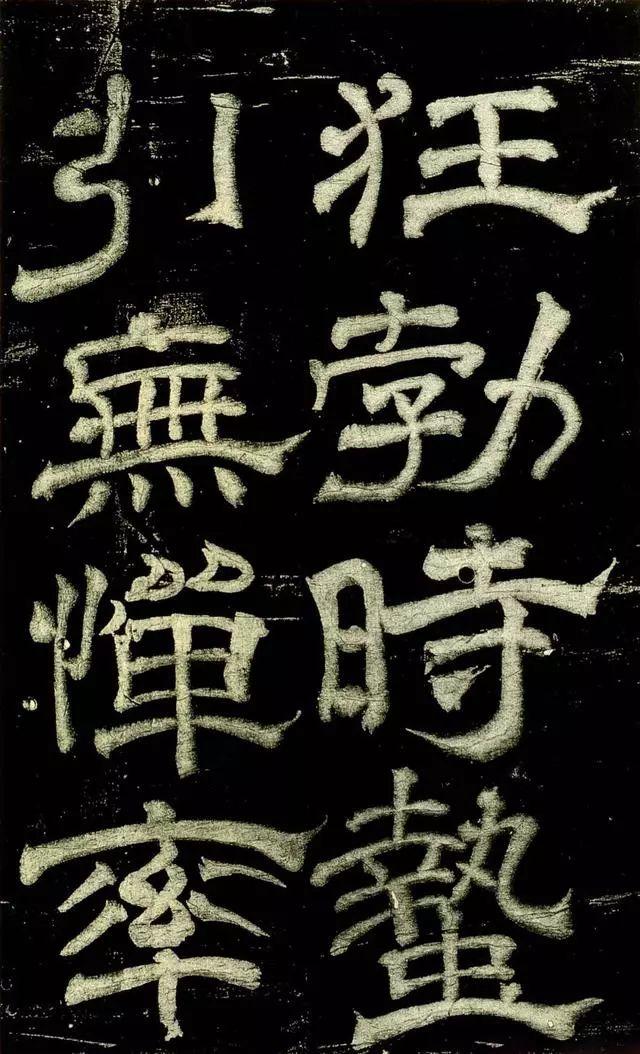 狂勃時蟄
引無憚率